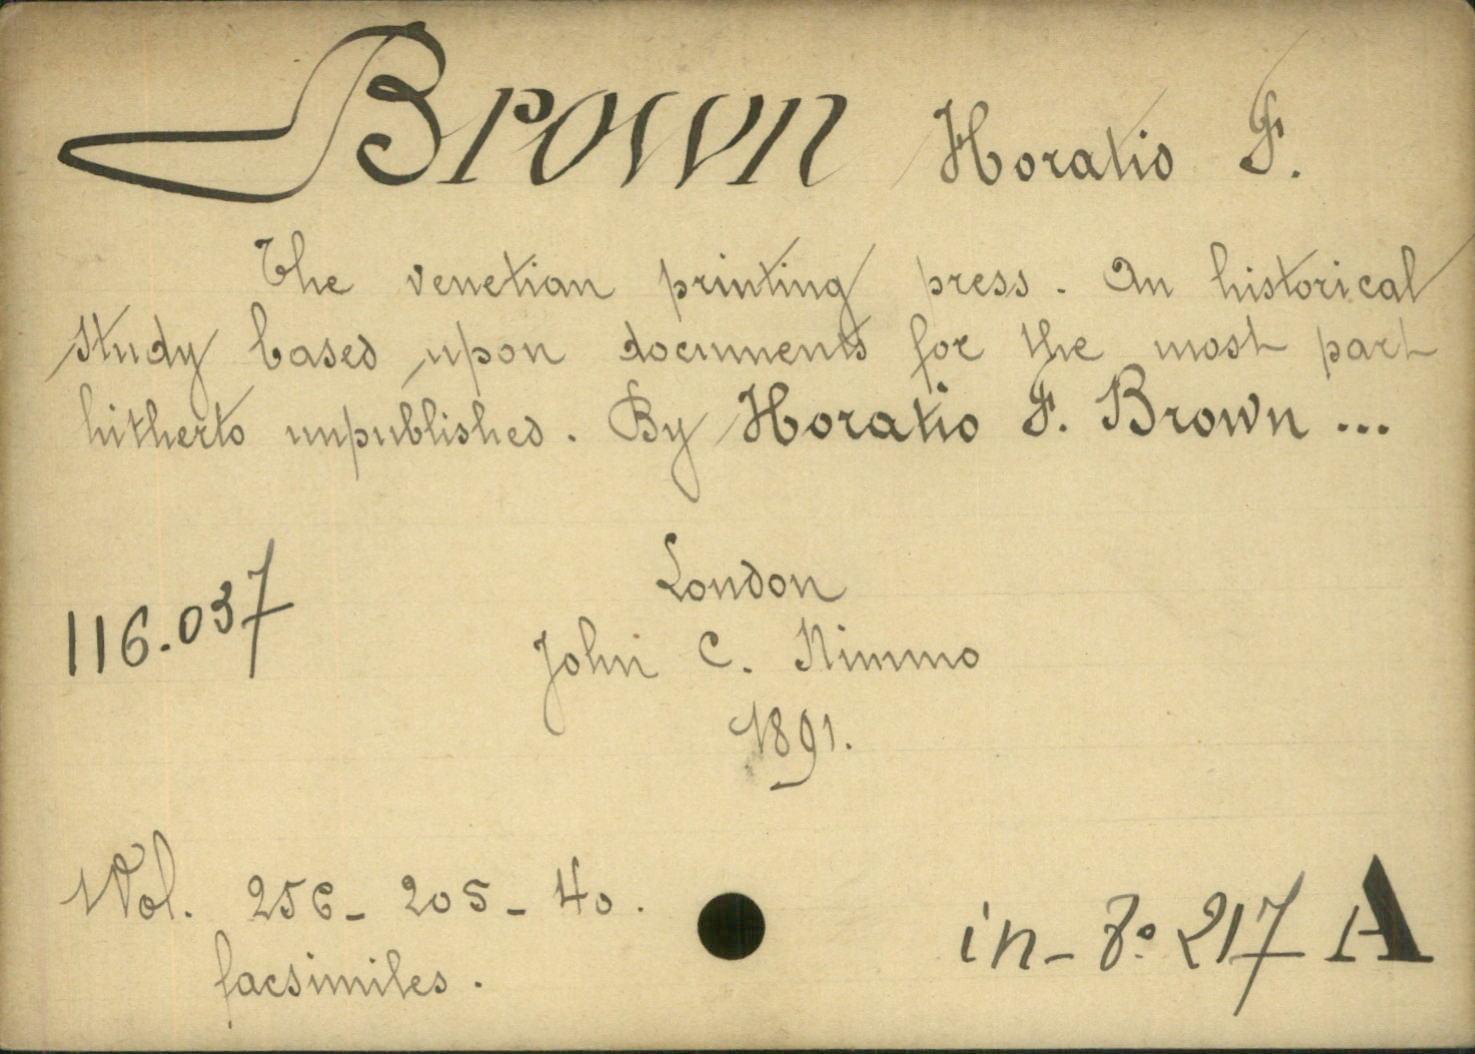 Brown Horatio F.
The venetian printing press. An historical
study based upon documents for the most part
hitherto unpublished. By Horatio F. Brown ...
London
116.037
John C. Nimmo
1891.
Vol. 256 - 205 - 40.
facsimiles.
in-8º 217 A